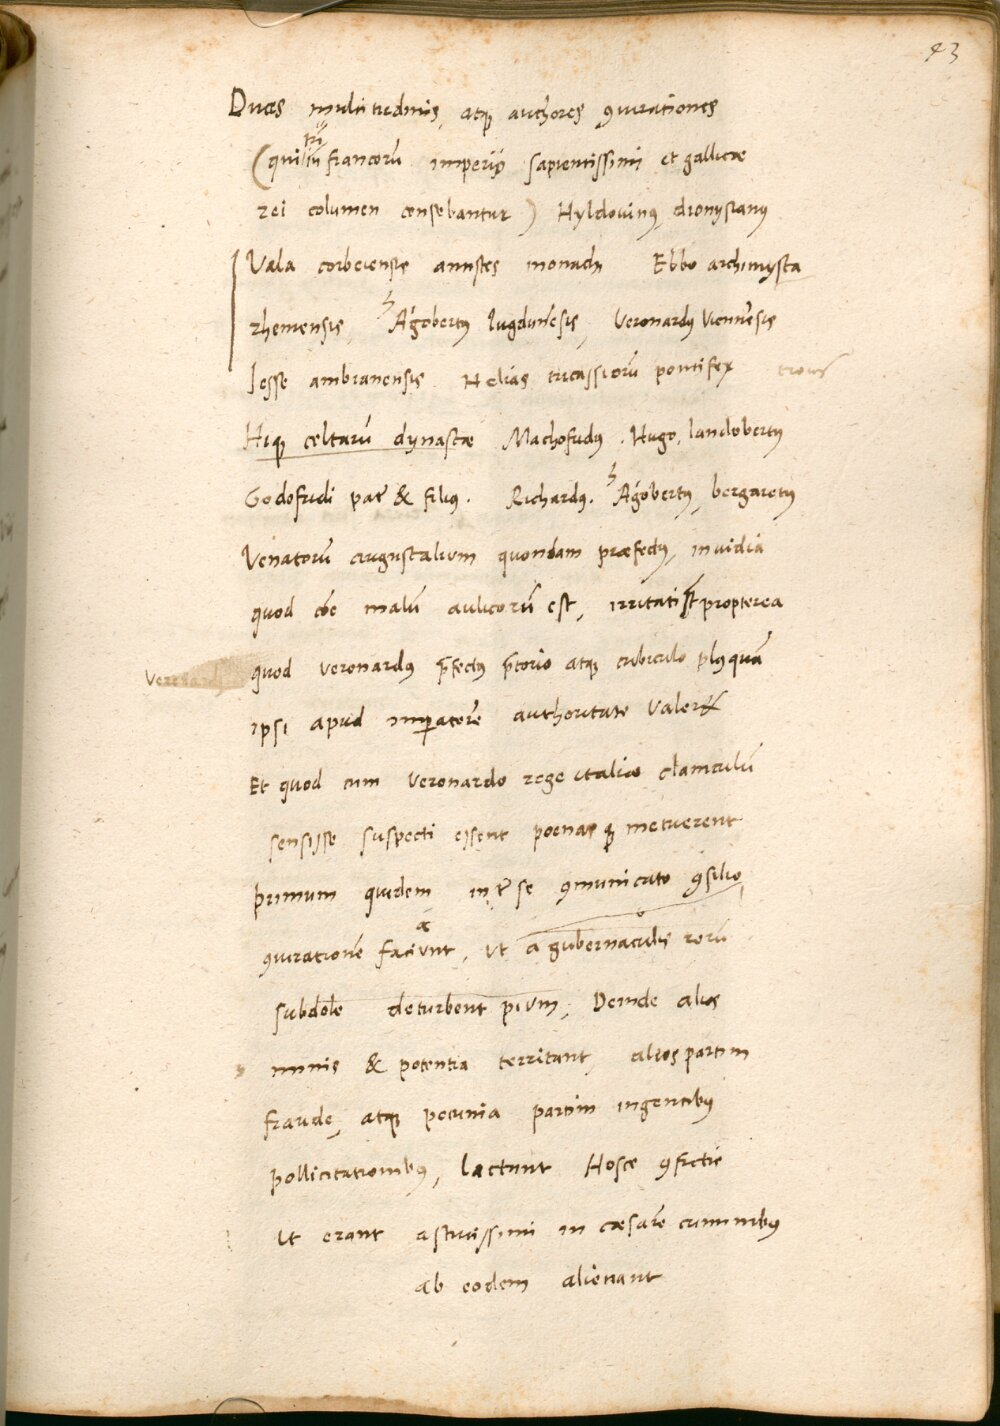 43
Duces multitudinis, atq; authores ꝯiurationes
(qui tū francorū imperij sapientissimi et gallicæ
rei columen censebantur) Hyldouinꝰ dionysianꝰ
Vala corbeiensis antistes monachi Ebbo archimysta
rhemensis, Agobertꝰ lugdunēsis, Veronardꝰ Viennēsis
Iesse ambianensis Helias tricassiorū pontifex
Hiq; celtarū dynastæ Machofridꝰ . Hugo, landobertꝰ
Godofridi pater & filiꝰ . Richardꝰ. Agobertꝰ, bergaretꝰ
Venatorū augustalium quondam præfectꝰ, inuidia
quod cōe malū aulicorū est, irritati st propterea
quod veronardꝰ p̄fectꝰ p̄torio atq; cubiculo plꝰquā
ipsi apud imꝑatorē authoritate valeret
Et quod cum Veronardo rege italico clamculū
sensisse suspecti essent poenas q; metuerent
primum quidem inter se ꝯmunicato ꝯsilio,
ꝯiurationē faciunt, ut a gubernaculis rerū
subdole deturbent pium, Deinde alios
minis & potentia territant, alios partim
fraude, atq; pecunia partim ingentibꝰ
pollicitationibꝰ, lactant Hosce ꝯfictis
ut erant astutissimi in cæsarē criminibꝰ
ab eodem alienant